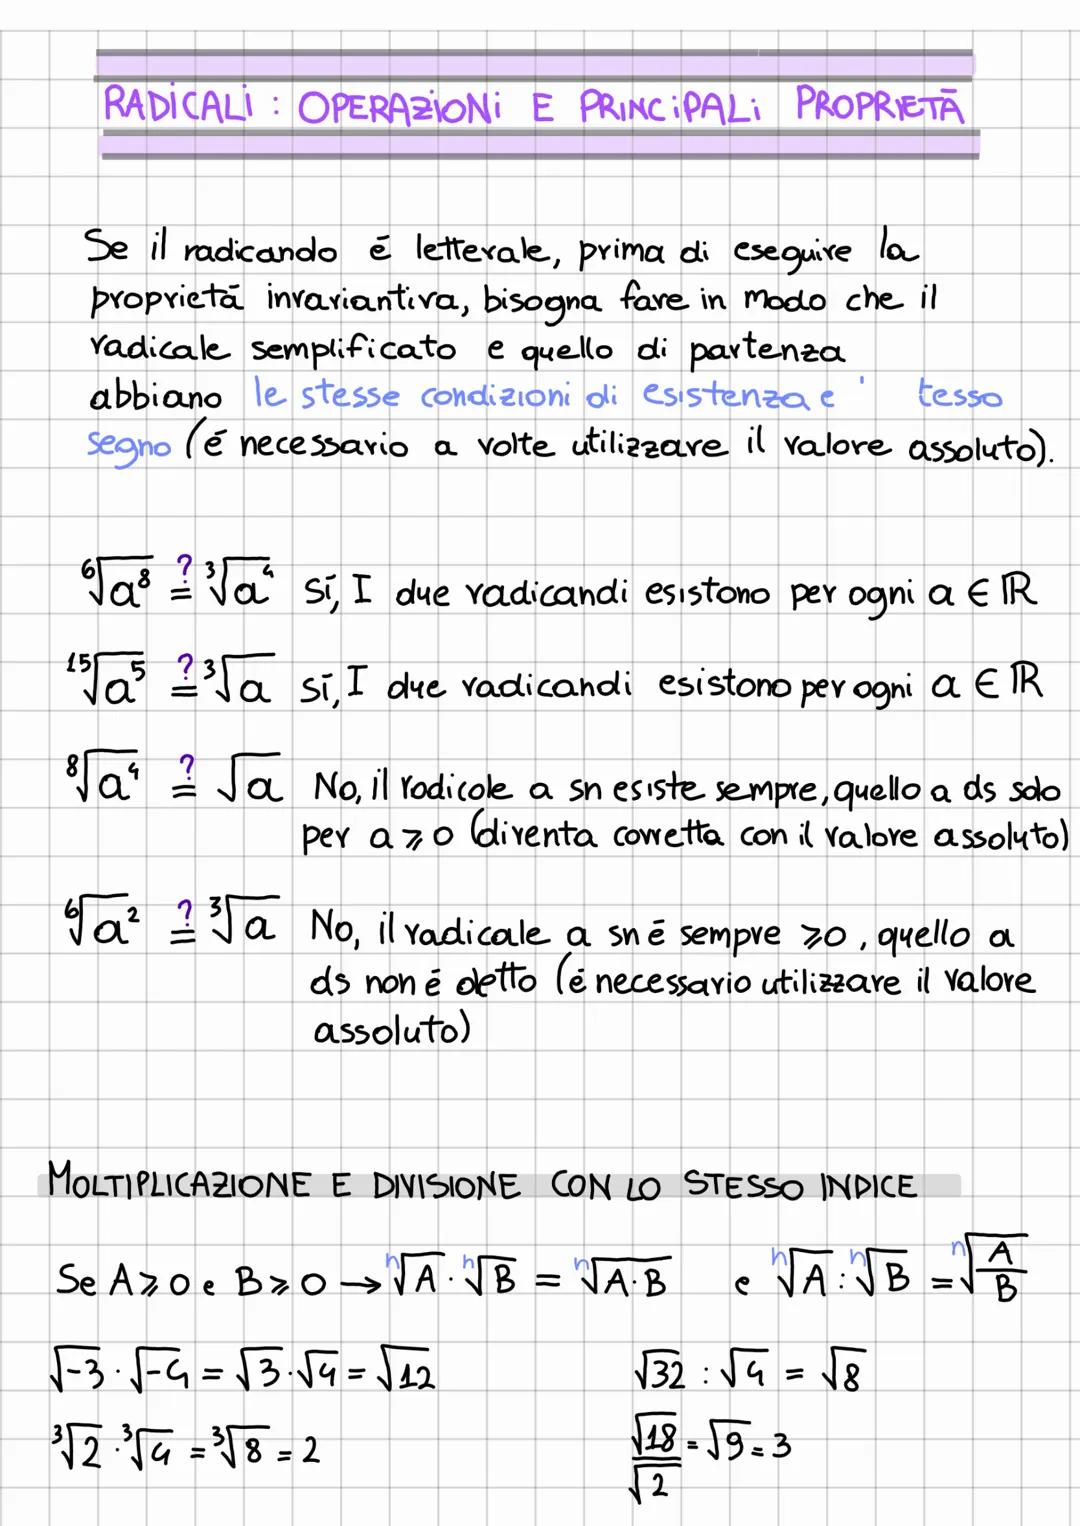 RADICALI : OPERAZIONI E PRINCIPALI PROPRIETÀ
Se il radicando é letterale, prima di eseguire la
proprietá invariantiva, bisogna fare in modo che il
radicale semplificato e quello di partenza
abbiano le stesse condizioni di esistenza e tesso
segno (é necessario a volte utilizzare il valore assoluto).
⁶√a⁸ ≟ ³√a⁴ sí, I due radicandi esistono per ogni a ∈ ℝ
¹⁵√a⁵ ≟ ³√a sí, I due radicandi esistono per ogni a ∈ ℝ
⁸√a⁴ ≟ √a No, il radicale a sn esiste sempre, quello a ds solo
per a ⩾ 0 (diventa corretta con il valore assoluto)
⁶√a² ≟ ³√a No, il radicale a sn é sempre ⩾0, quello a
ds non é detto (é necessario utilizzare il valore
assoluto)
MOLTIPLICAZIONE E DIVISIONE CON LO STESSO INDICE
Se A⩾0 e B⩾0 → ⁿ√A · ⁿ√B = ⁿ√A·B e ⁿ√A : ⁿ√B = ⁿ√A/B
√-3 · √-4 = √3 · √4 = √12 √32 : √4 = √8
³√2 · ³√4 = ³√8 = 2 √18/√2 = √9 = 3